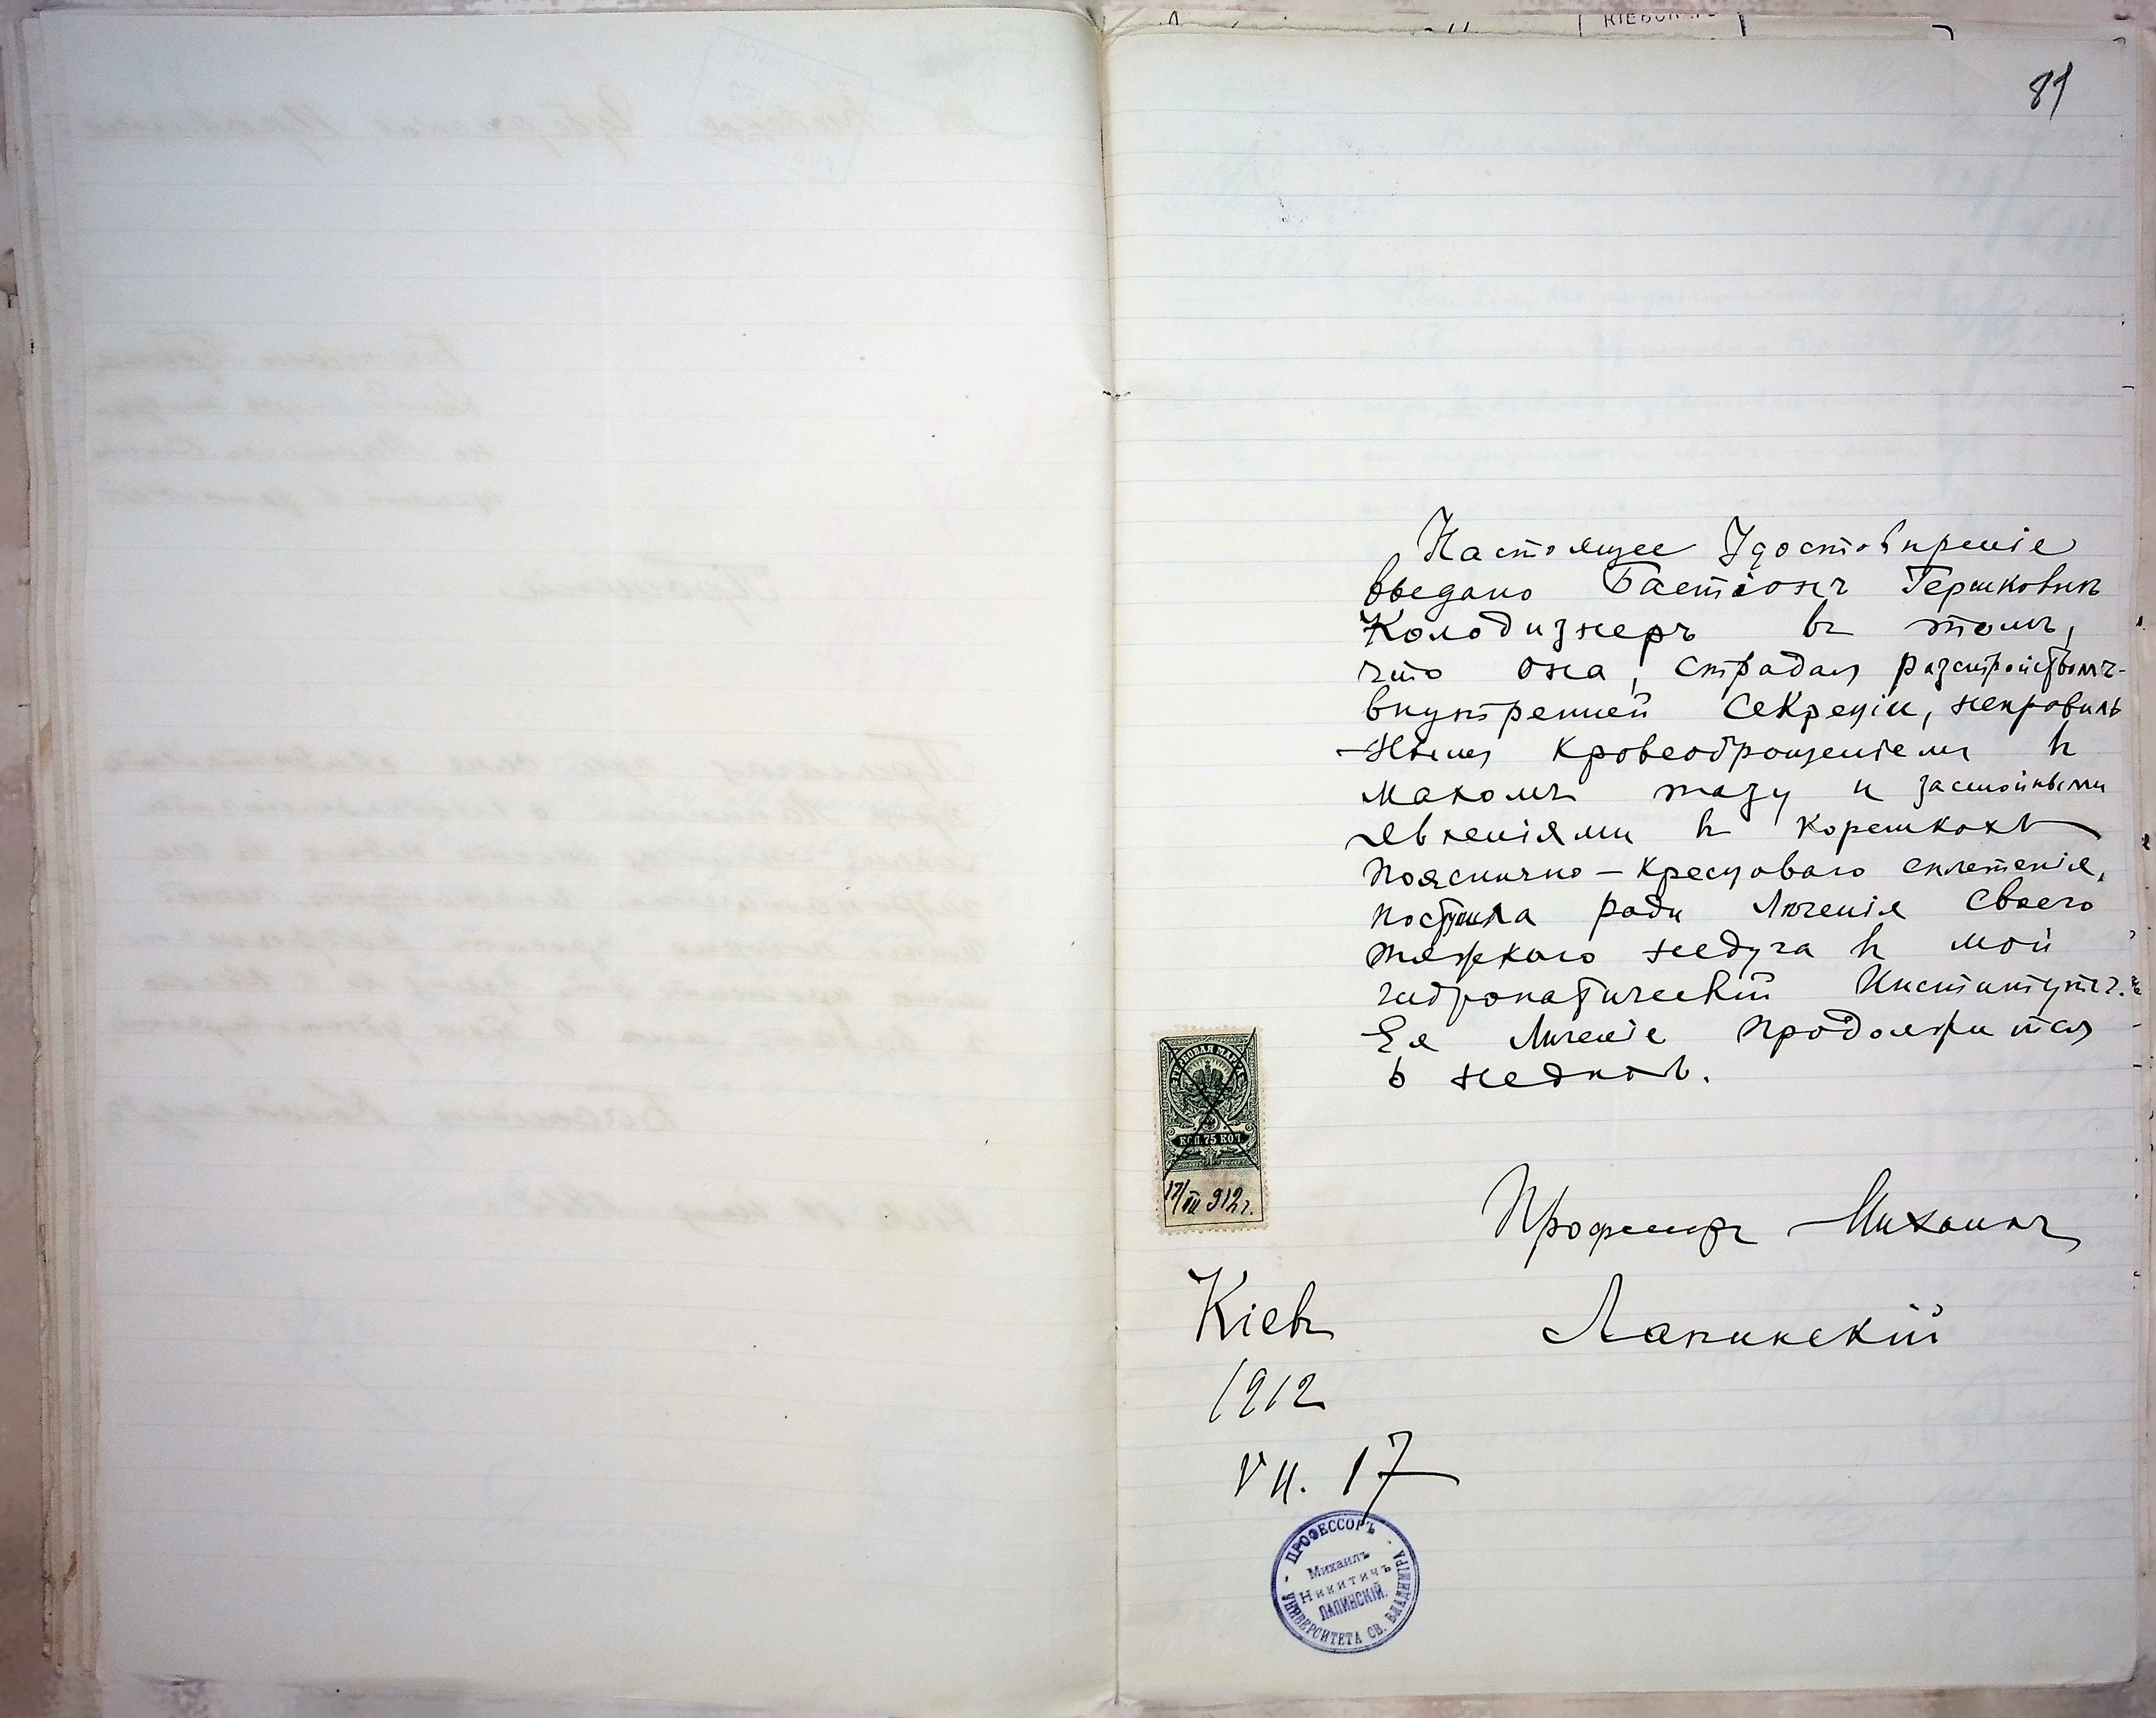 81
Настоящее Удостовѣреніе
выдано Бастіонъ Гершковнѣ
Колодизнеръ въ томъ,
что она, страдая разстройствомъ
внутренней секреціи, неправиль
-нымъ кровеобращеніемъ въ
маломъ тазу и застойными
явленіями въ корешкахъ
пояснично-крестцоваго сплетенія,
поступила ради леченія своего
тяжкаго недуга въ мой
гидропатическій Институтъ.
Ея леченіе продолжится
6 недѣль.
КОП. 75 КОП.
17/VII 912г.
Профессоръ Михаилъ
Лапинскій
Кіевъ
1912
VII. 17
ПРОФЕССОРЪ
Михаилъ
Никитичъ
ЛАПИНСКІЙ.
УНИВЕРСИТЕТА СВ. ВЛАДИМІРА